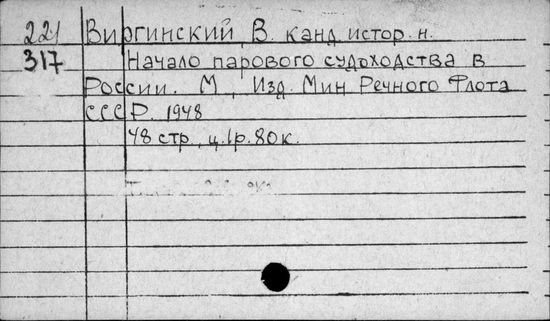 221 Виргинский, В. канд. истор. н.
317 Начало парового судоходства в
России. М., Изд. Мин. Речного Флота
СССР. 1948
48 стр., ц. 1р. 80к.